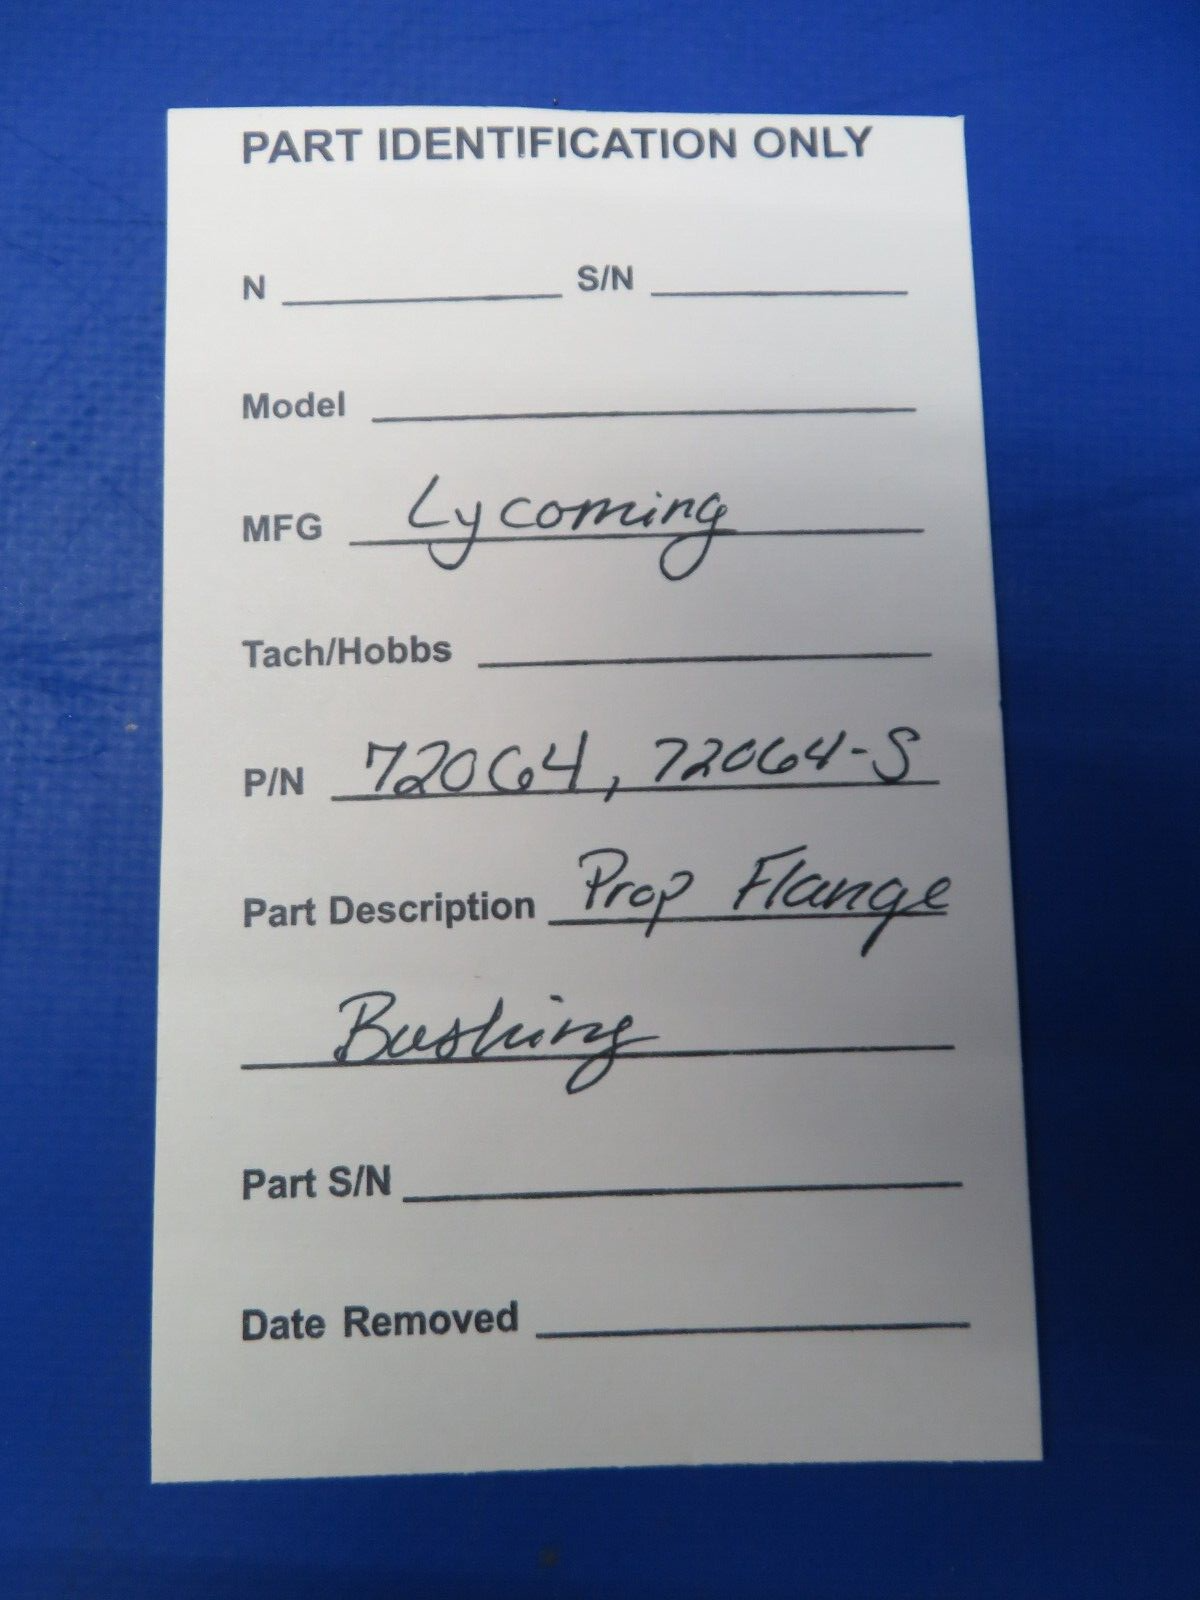 PART IDENTIFICATION ONLY
N S/N
Model
MFG Lycoming
Tach/Hobbs
P/N 72064, 72064-S
Part Description Prop Flange
Bushing
Part S/N
Date Removed